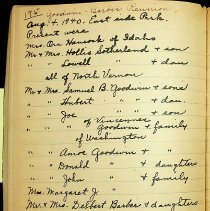 17th Goodwin-Barber Reunion
Aug. 4, 1940. East side Park.
Present were
Mrs. Ora Hancock of Idaho
Mr & Mrs Hollis Sotherland & son
" " " Lowell " & dau
all of North Vernon
Mr & Mrs. Samuel B. Goodwin & sons
" " " Hubert " " & dau.
" " " Joe " & sons
of Vincennes
" " " Goodwin & family
of Washington
" " " Amos Goodwin &
" " " Donald " & daughters
" " " John " & family
Mrs. Margaret J "
Mr. & Mrs. Delbert Barber & daughters